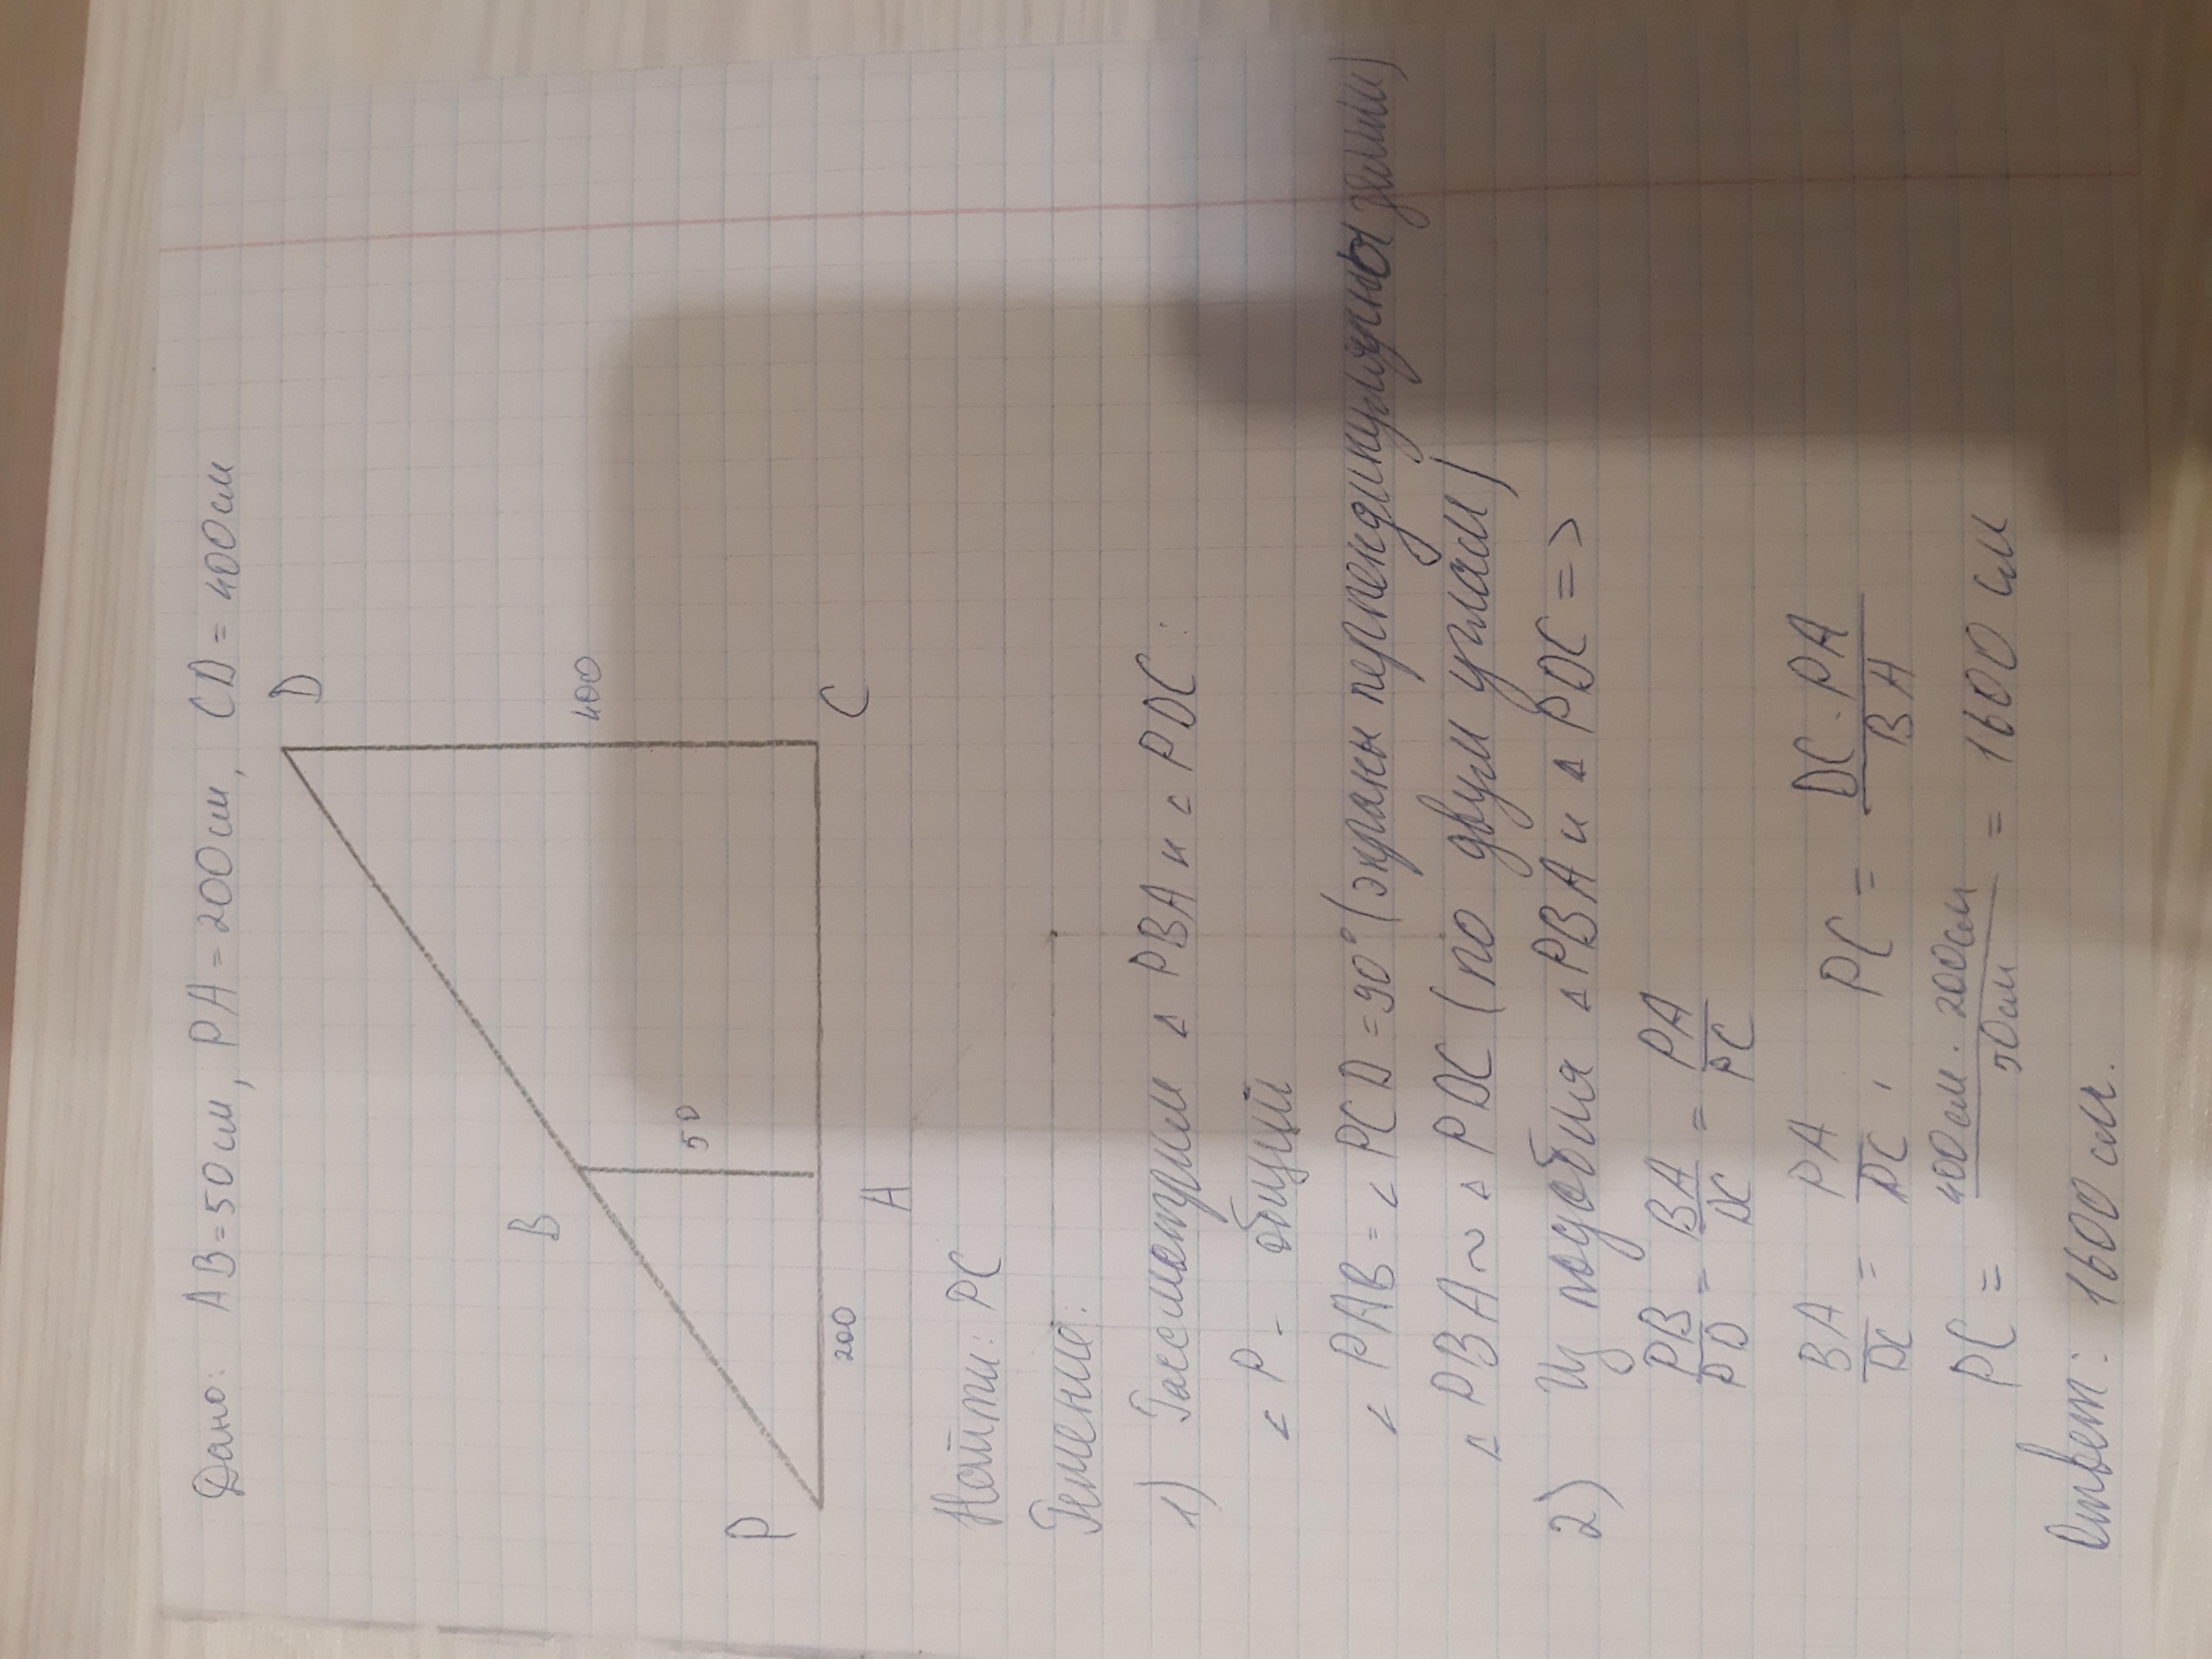 Дано: AB = 50 см, PA = 200 см, CD = 400 см
D
B
400
50
P
200
A
C
Найти: PC
Решение:
1) Рассмотрим △ PBA и △ PDC:
∠ P - общий
∠ PAB = ∠ PCD = 90° (экраны перпендикулярны земли)
△ PBA ~ △ PDC (по двум углам)
2) Из подобия △ PBA и △ PDC =>
PB/PD = BA/DC = PA/PC
BA/DC = PA/PC , PC = DC · PA/BA
PC = 400 см · 200 см/50 см = 1600 см
Ответ: 1600 см.